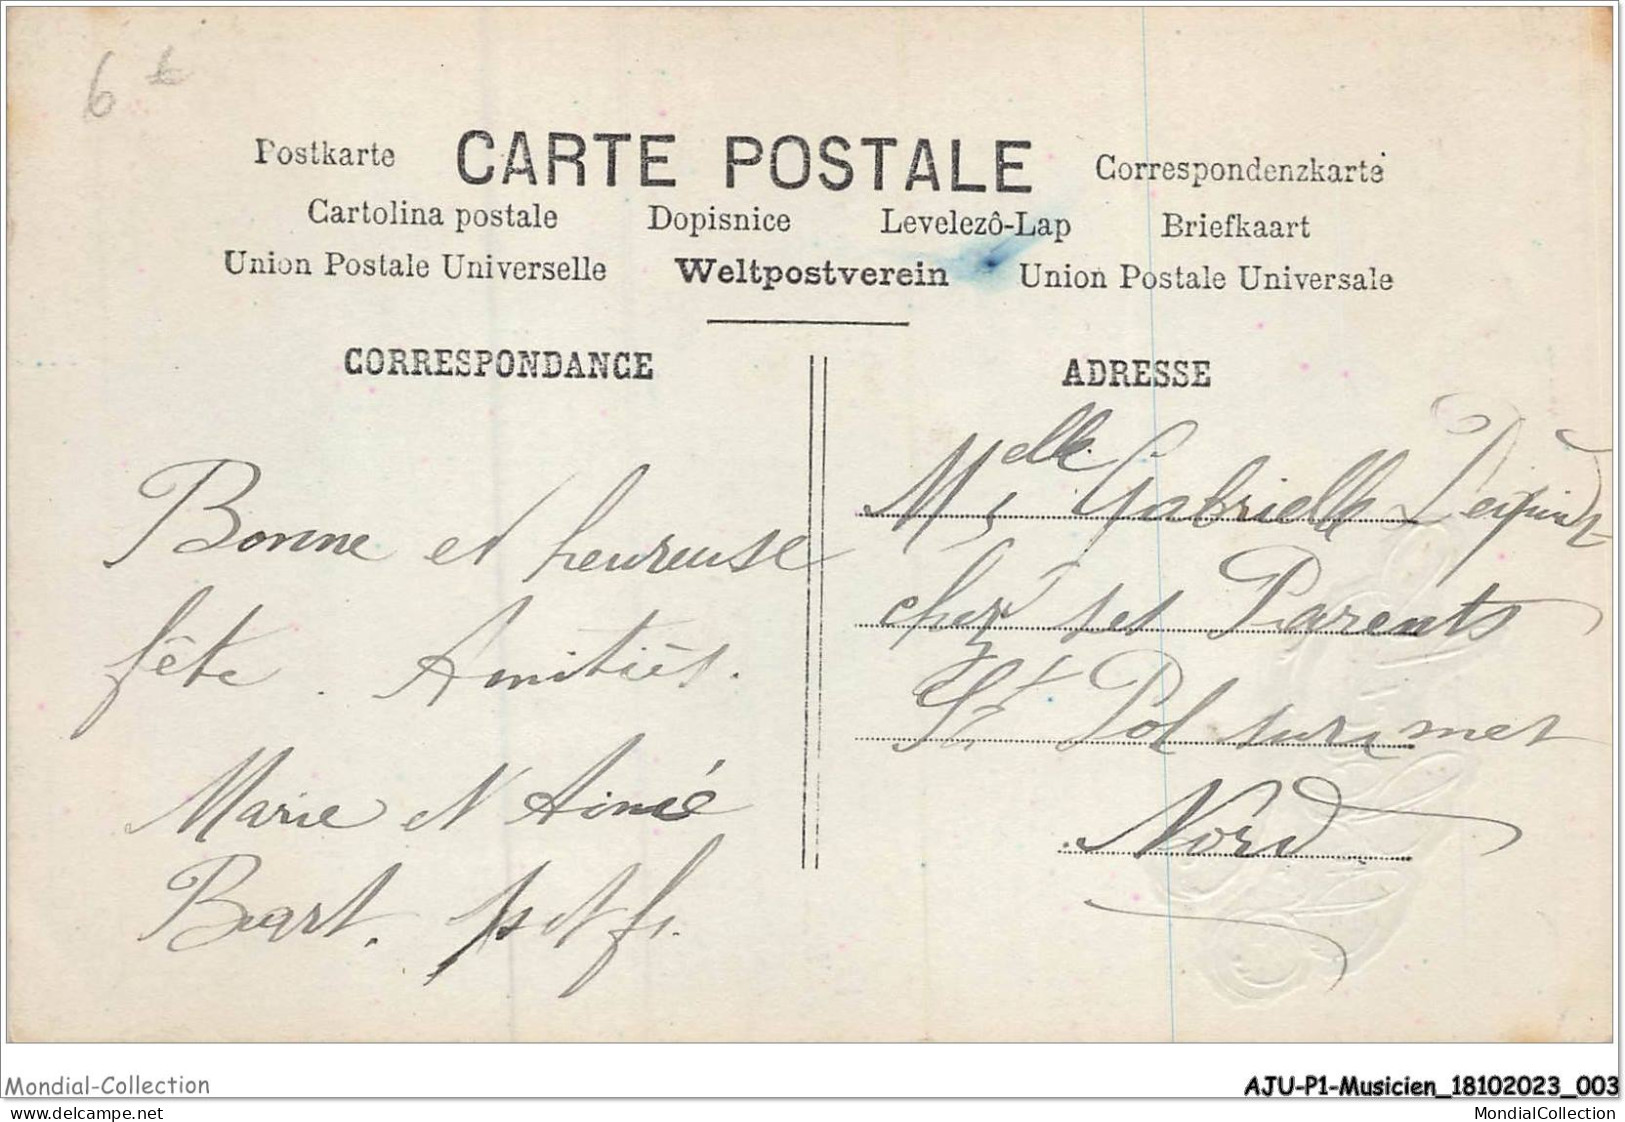 6
Postkarte CARTE POSTALE Correspondenzkarte
Cartolina postale Dopisnice Levelezô-Lap Briefkaart
Union Postale Universelle Weltpostverein Union Postale Universale
CORRESPONDANCE
ADRESSE
Bonne et heureuse
fête. Amitiés.
Marie et Aimé
Bart.
Melle Gabrielle
chez ses Parents
St Pol sur mer
Nord
Mondial-Collection
AJU-P1-Musicien_18102023_003
delcampe.net
MondialCollection